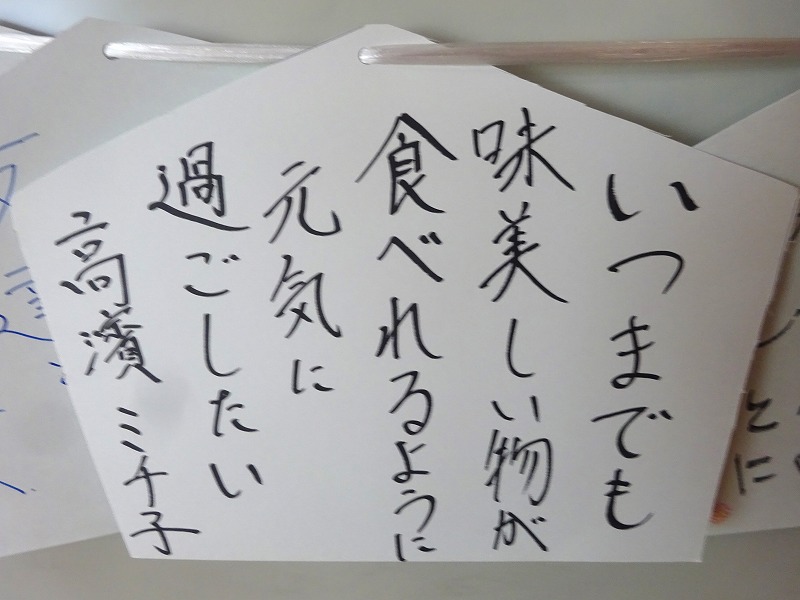 いつまでも
味美しい物が
食べれるように
元気に
過ごしたい
高濱ミチ子
とに